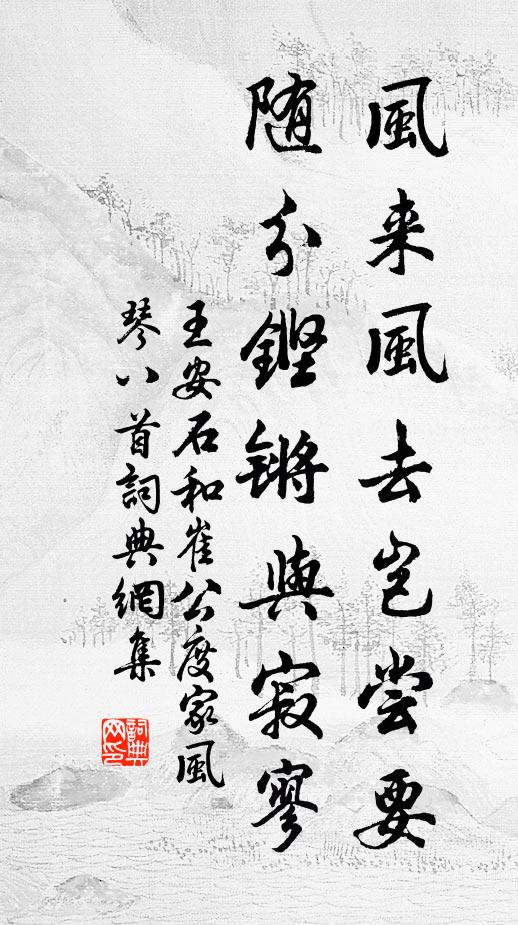 風来風去岂尝要
随分鏗锵與寂寥
王安石和崔公度家風
琴八首詞典網集
詞典
网印